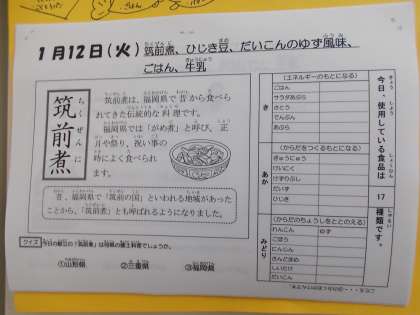 1月12日(火) 筑前煮、ひじき豆、だいこんのゆず風味、
ごはん、牛乳
筑前煮
ちくぜんに
筑前煮は、福岡県で昔から食べら
れてきた伝統的な料理です。
福岡県では「がめ煮」と呼び、正
月や祭り、祝い事の
時によく食べられ
ます。
昔、福岡県で「筑前の国」といわれる地域があった
ことから、「筑前煮」とも呼ばれるようになりました。
クイズ 今日の献立の「筑前煮」は何県の郷土料理でしょうか。
①山形県 ②三重県 ③福岡県
今日、使用している食品は
17
種類です。
き
(エネルギーのもとになる)
ごはん
サラダあぶら
さとう
でんぷん
あぶら
あか
(からだをつくるもとになる)
ぎゅうにゅう
けいにく
けずりぶし
だいず
ひじき
みどり
(からだのちょうしをととのえる)
れんこん ゆず
ごぼう
にんじん
さんどまめ
しいたけ
だいこん